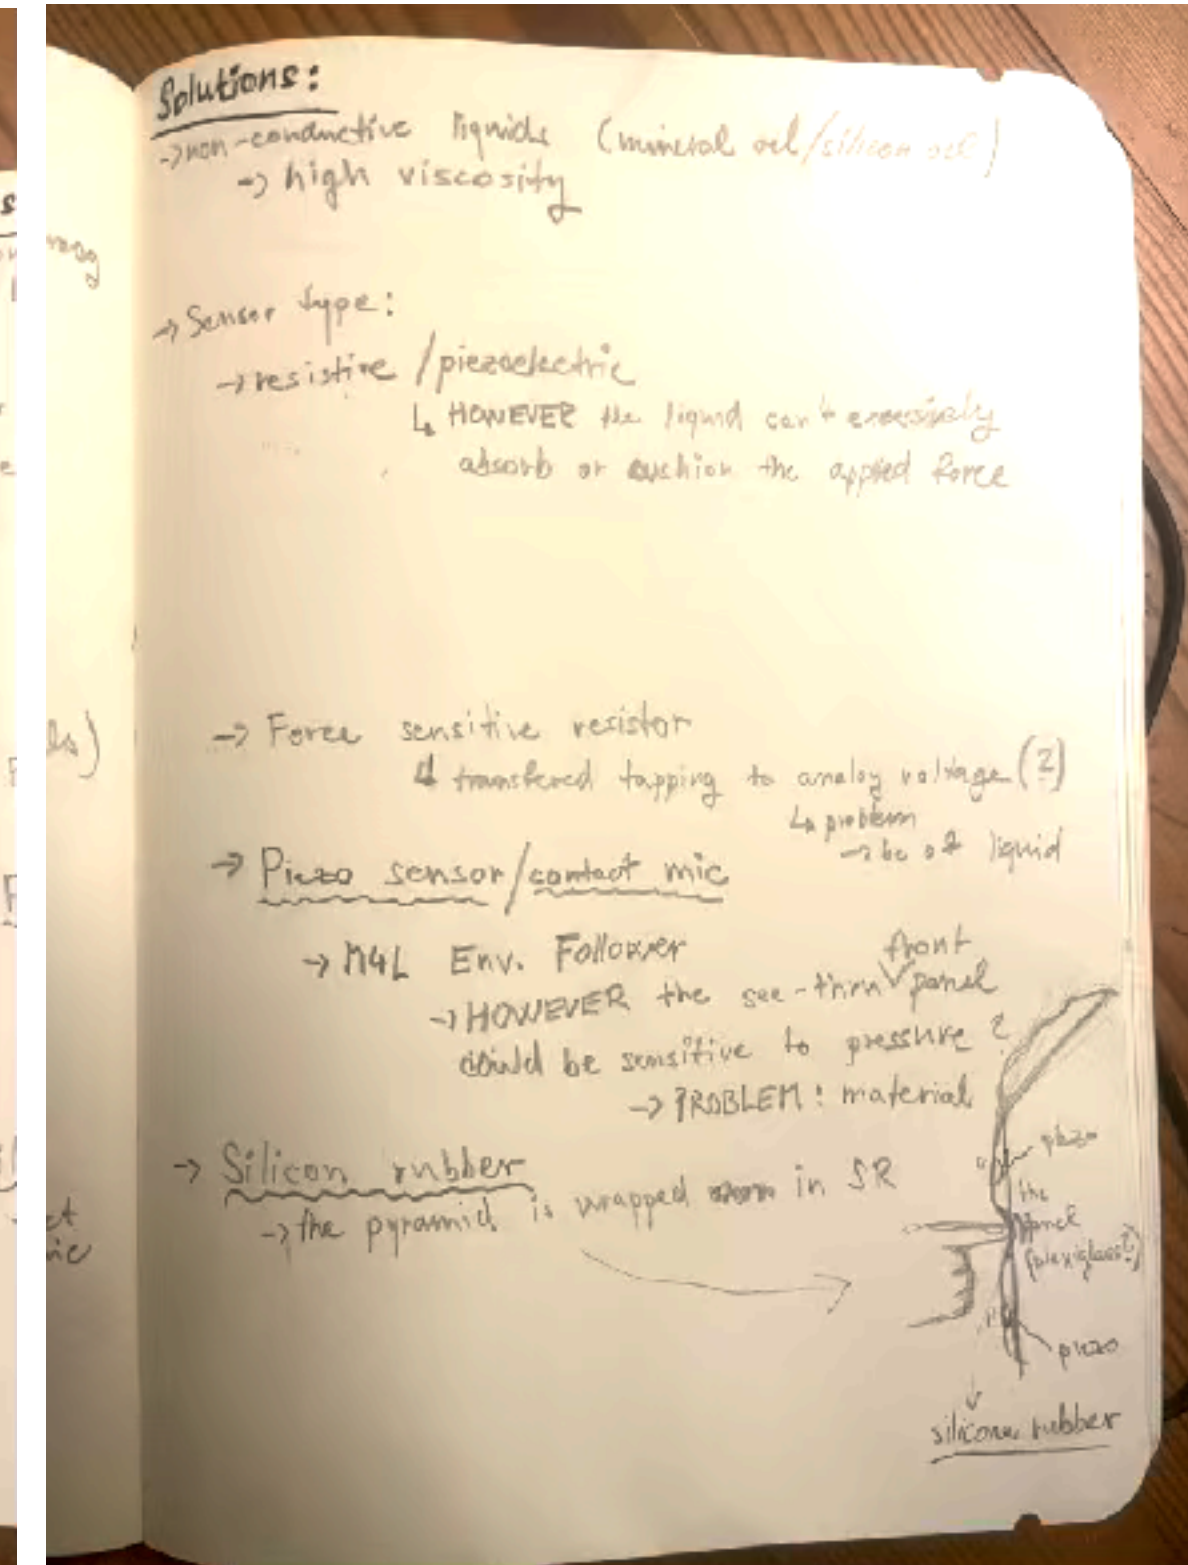 Solutions:
-> non-conductive liquids (mineral oil/silicon oil)
-> high viscosity
-> Sensor type:
-> resistive / piezoelectric
↳ HOWEVER the liquid can't excessively
absorb or cushion the applied force
-> Force sensitive resistor
↳ transfered tapping to analog voltage (?)
↳ problem
-> bc of liquid
-> Piezo sensor/contact mic
-> M4L Env. Follower
front
-> HOWEVER the see-thru panel
could be sensitive to pressure ?
-> PROBLEM: material
-> Silicon rubber
-> the pyramid is wrapped in SR
piezo
the
panel
(plexiglass?)
piezo
silicone rubber